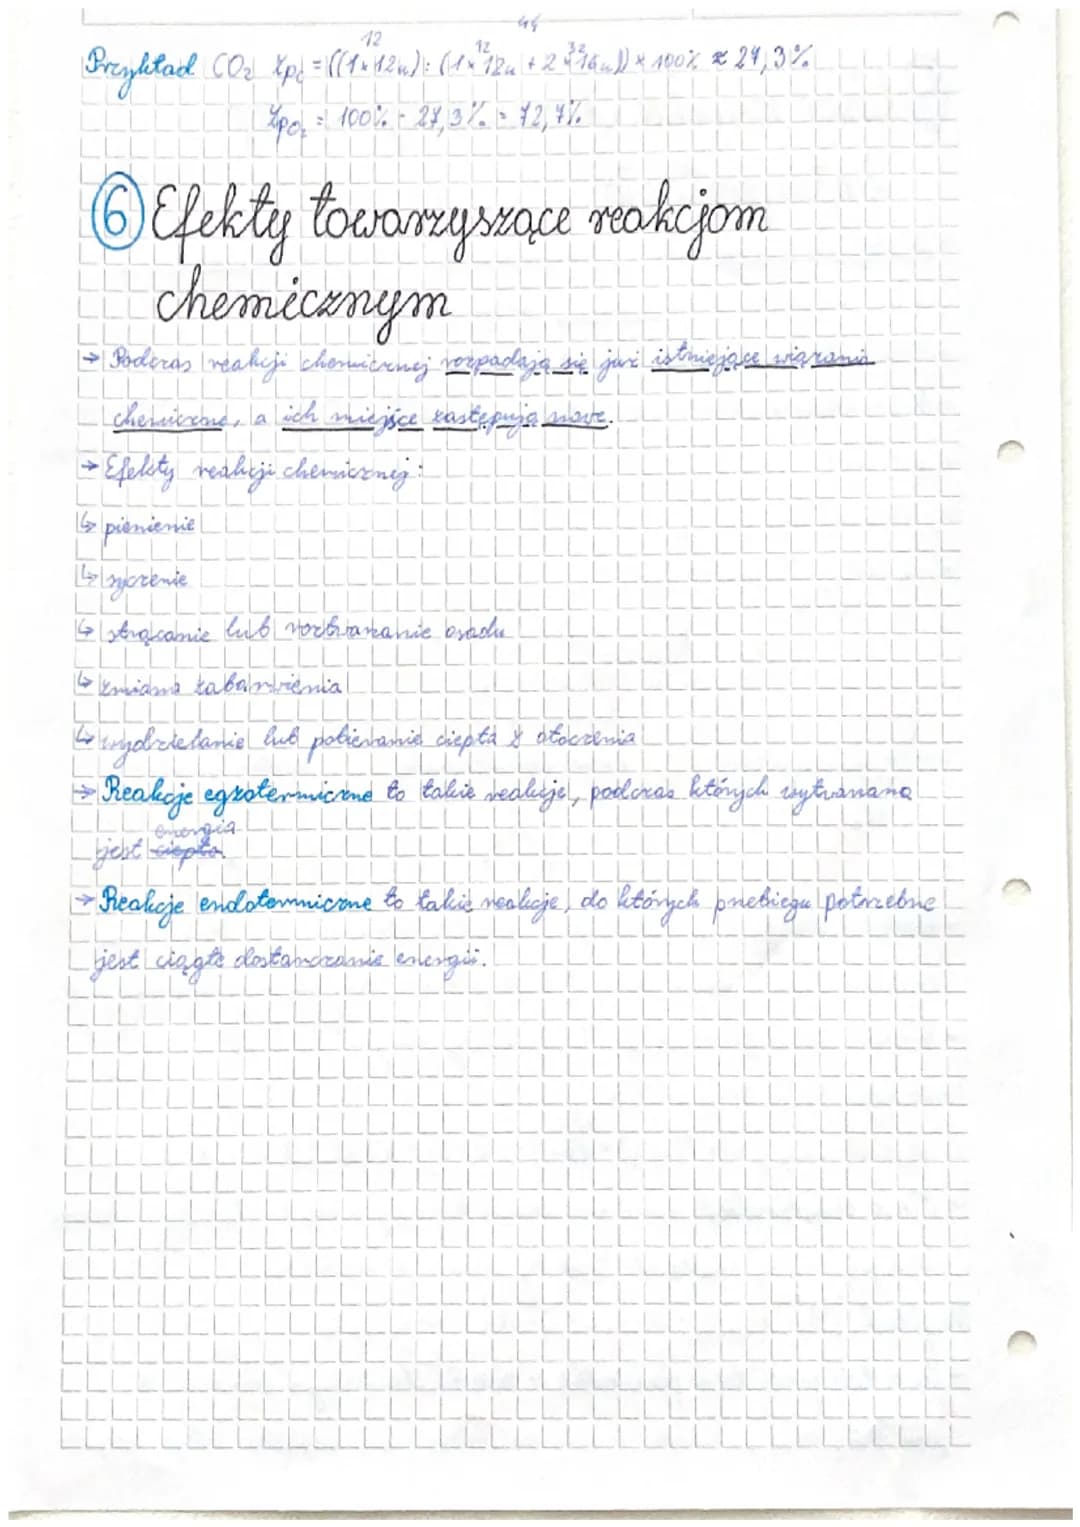 44
12 12 32
Przykład CO₂ %pc = ((1×12u) : (1×12u + 2×16u)) × 100% ≈ 27,3%
%po₂ = 100% - 27,3% = 72,7%
6 Efekty towarzyszące reakcjom
chemicznym
→ Podczas reakcji chemicznej rozpadają się już istniejące wiązania
chemiczne, a ich miejsce zastępują nowe.
→ Efekty reakcji chemicznej:
↳ pienienie
↳ syczenie
↳ strącanie lub roztwarzanie osadu
↳ zmiana zabarwienia
↳ wydzielanie lub pobieranie ciepła z otoczenia
→ Reakcje egzotermiczne to takie reakcje, podczas których wytwarzana
energia
jest ciepło.
→ Reakcje endotermiczne to takie reakcje, do których przebiegu potrzebne
jest ciągłe dostarczanie energii.